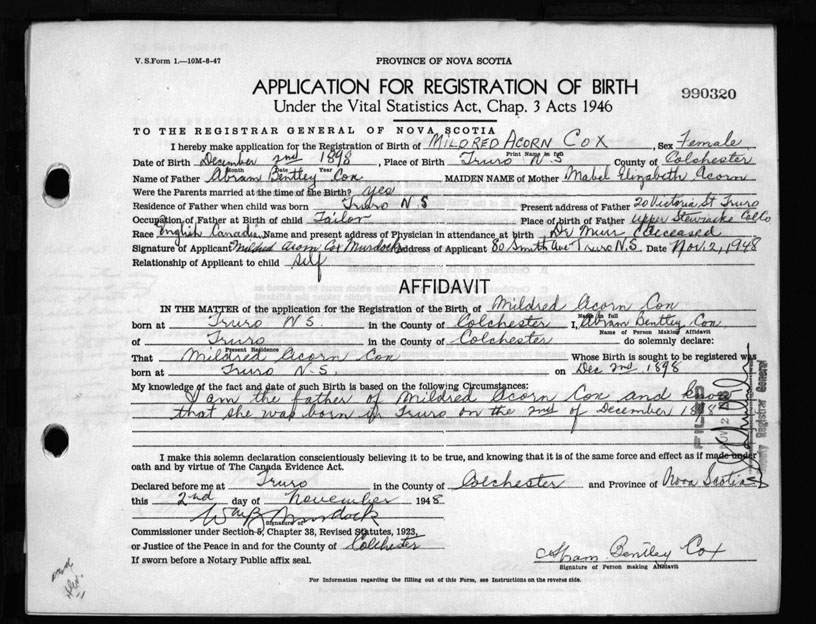 V. S. Form 1.—10M-8-47
PROVINCE OF NOVA SCOTIA
APPLICATION FOR REGISTRATION OF BIRTH
990320
Under the Vital Statistics Act, Chap. 3 Acts 1946
TO THE REGISTRAR GENERAL OF NOVA SCOTIA
I hereby make application for the Registration of Birth of MILDRED ACORN COX, Sex Female
Print Name in full
Date of Birth December 2nd 1898, Place of Birth Truro N.S County of Colchester
Month Date Year
Name of Father Abram Bentley Cox MAIDEN NAME of Mother Mabel Elizabeth Acorn
Were the Parents married at the time of the Birth? yes
Residence of Father when child was born Truro N S Present address of Father 20 Victoria St Truro
Occupation of Father at Birth of child Tailor Place of birth of Father Upper Stewiacke Colco
Race English Canadian, Name and present address of Physician in attendance at birth Dr Muir (deceased
Signature of Applicant Mildred Acorn Cox Murdock Address of Applicant 80 Smith Ave Truro N.S. Date Nov. 2, 1948
Relationship of Applicant to child Self
AFFIDAVIT
IN THE MATTER of the application for the Registration of the Birth of Mildred Acorn Cox
Name in full
born at Truro N S. in the County of Colchester I, Abram Bentley Cox,
Name of Person Making Affidavit
of Truro in the County of Colchester do solemnly declare:
Present Residence
That Mildred Acorn Cox Whose Birth is sought to be registered was
born at Truro N.S. on Dec 2nd 1898
My knowledge of the fact and date of such Birth is based on the following Circumstances:
I am the father of Mildred Acorn Cox and know
that she was born in Truro on the 2nd of December 1898
FILED
NOV 2
Deputy Registrar General
I make this solemn declaration conscientiously believing it to be true, and knowing that it is of the same force and effect as if made under
oath and by virtue of The Canada Evidence Act.
Declared before me at Truro in the County of Colchester and Province of Nova Scotia
this 2nd day of November 1948
Murdock
Signature of
Commissioner under Section 5, Chapter 38, Revised Statutes, 1923,
or Justice of the Peace in and for the County of Colchester
If sworn before a Notary Public affix seal.
Abram Bentley Cox
Signature of Person making Affidavit
For Information regarding the filling out of this Form, see Instructions on the reverse side.